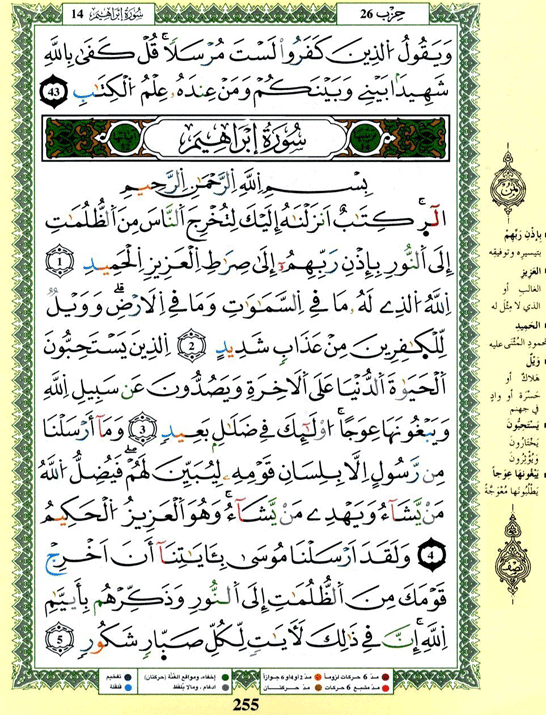 سُورَةُ إِبْرَاهِيمَ 14
حِزْب 26
وَيَقُولُ الذِينَ كَفَرُواْ لَسْتَ مُرْسَلاً قُلْ كَفَىٰ بِاللَّهِ
شَهِيداً بَيْنِي وَبَيْنَكُمْ وَمَنْ عِندَهُ عِلْمُ الْكِتَٰبِ 43
سُورَةُ إِبْرَاهِيمَ
بِسْمِ اللَّهِ الرَّحْمَٰنِ الرَّحِيمِ
أَلَٓر كِتَٰبٌ اَنزَلْنَٰهُ إِلَيْكَ لِتُخْرِجَ النَّاسَ مِنَ الظُّلُمَٰتِ
إِلَى النُّورِ بِإِذْنِ رَبِّهِمُۥٓ إِلَىٰ صِرَٰطِ الْعَزِيزِ الْحَمِيدِ 1
اِللَّهِ الذِے لَهُۥ مَا فِي السَّمَٰوَٰتِ وَمَا فِي الَارْضِ وَوَيْلٌ
لِّلْكَٰفِرِينَ مِنْ عَذَابٍ شَدِيدٍ 2 اِلذِينَ يَسْتَحِبُّونَ
الْحَيَوٰةَ الدُّنْيَا عَلَى اَلَاخِرَةِ وَيَصُدُّونَ عَن سَبِيلِ اِللَّهِ
وَيَبْغُونَهَا عِوَجاً اوْلَٰٓئِكَ فِي ضَلَٰلٍ بَعِيدٍ 3 وَمَآ أَرْسَلْنَا
مِن رَّسُولٍ اِلَّا بِلِسَانِ قَوْمِهِۦ لِيُبَيِّنَ لَهُمْ فَيُضِلُّ اُللَّهُ
مَنْ يَّشَآءُ وَيَهْدِے مَنْ يَّشَآءُ وَهُوَ اَلْعَزِيزُ الْحَكِيمُ
4 وَلَقَدَ اَرْسَلْنَا مُوسَىٰ بِـَٔايَٰتِنَآ أَنَ اَخْرِجْ
قَوْمَكَ مِنَ الظُّلُمَٰتِ إِلَى النُّورِ وَذَكِّرْهُم بِأَيَّٰمِ
اِللَّهِ إِنَّ فِي ذَٰلِكَ لَأٓيَٰتٍ لِّكُلِّ صَبَّارٍ شَكُورٍ 5
بِإِذْنِ رَبِّهِمْ
بتيسيره وتوفيقه
العَزِيزِ
الغالب أو
الذي لا مِثْلَ له
الحَمِيدِ
المحمودِ المُثْنَى عليه
وَيْلٌ
هَلَاكٌ أو
حَسْرَة أو وادٍ
في جهنم
يَسْتَحِبُّونَ
يَخْتَارُونَ
وَيُؤْثِرُونَ
يَبْغُونَهَا عِوَجاً
يَطْلُبُونها مُعْوَجَّةً
نصف
مدّ 6 حركات لزوماً
مدّ 2 أو 4 أو 6 جوازاً
إخفاء، ومواقع الغُنَّة (حركتان)
تفخيم
مدّ مشبع 6 حركات
مدّ حركتان
ادغام، ومالا يُلفظ
قلقلة
255